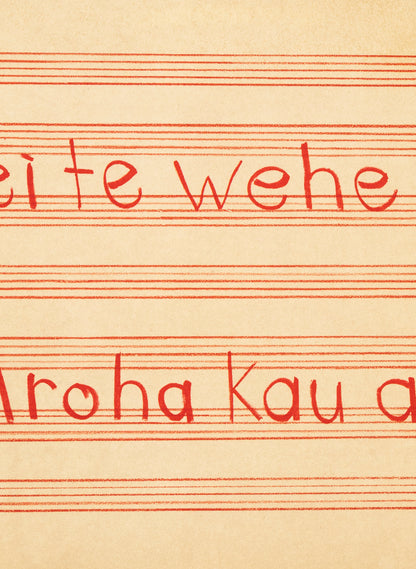 ei te wehe
Aroha kau a